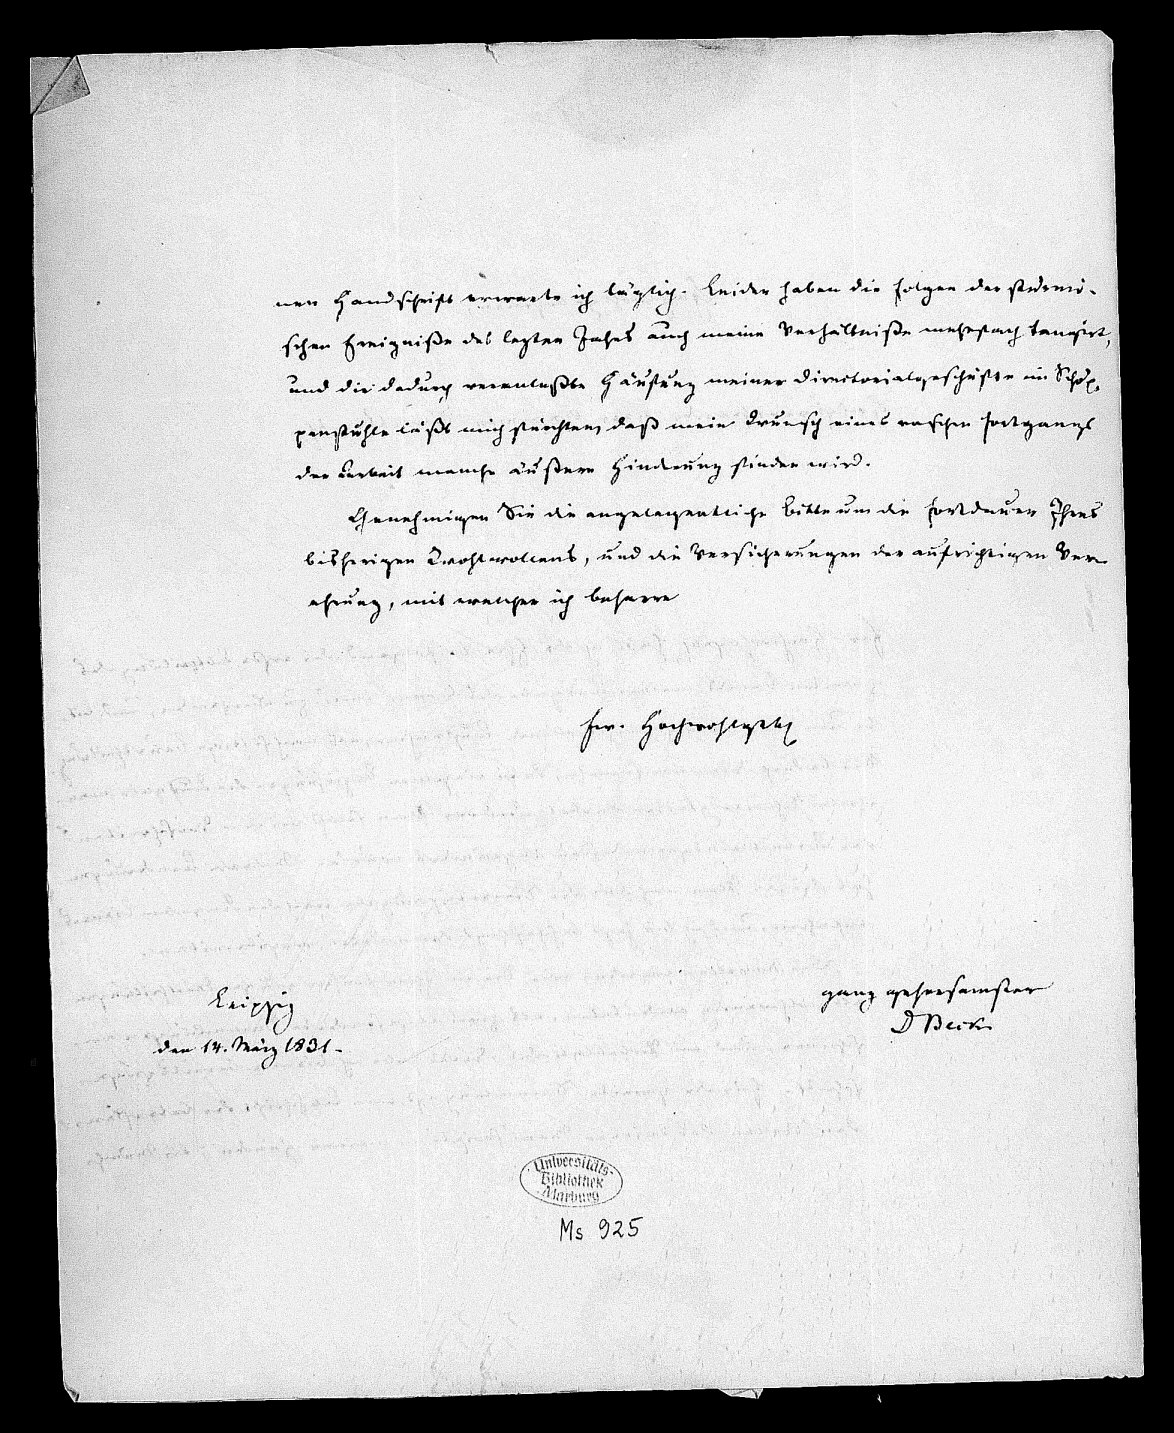 nen Handschrift erwarte ich täglich. Leider haben die Folgen der
schen Ereigniße des letzten Jahres auch meine Verhältniße mehrfach tangirt,
und die dadurch veranlaßte Häufung meiner Directorialgeschäfte im Schöp-
penstuhle läßt mich fürchten, daß mein Wunsch eines raschen Fortgangs
der Arbeit manche äußere Hinderung finden wird.
Genehmigen Sie die angelegentliche Bitte um die Fortdauer Ihres
bisherigen Wohlwollens, und die Versicherungen der aufrichtigen Ver-
ehrung, mit welcher ich beharre
Ew. Hochwohlgeb
ganz gehorsamster
D Beck.
Leipzig
den 14. März 1831.
Universitäts-
Bibliothek
Marburg
Ms 925